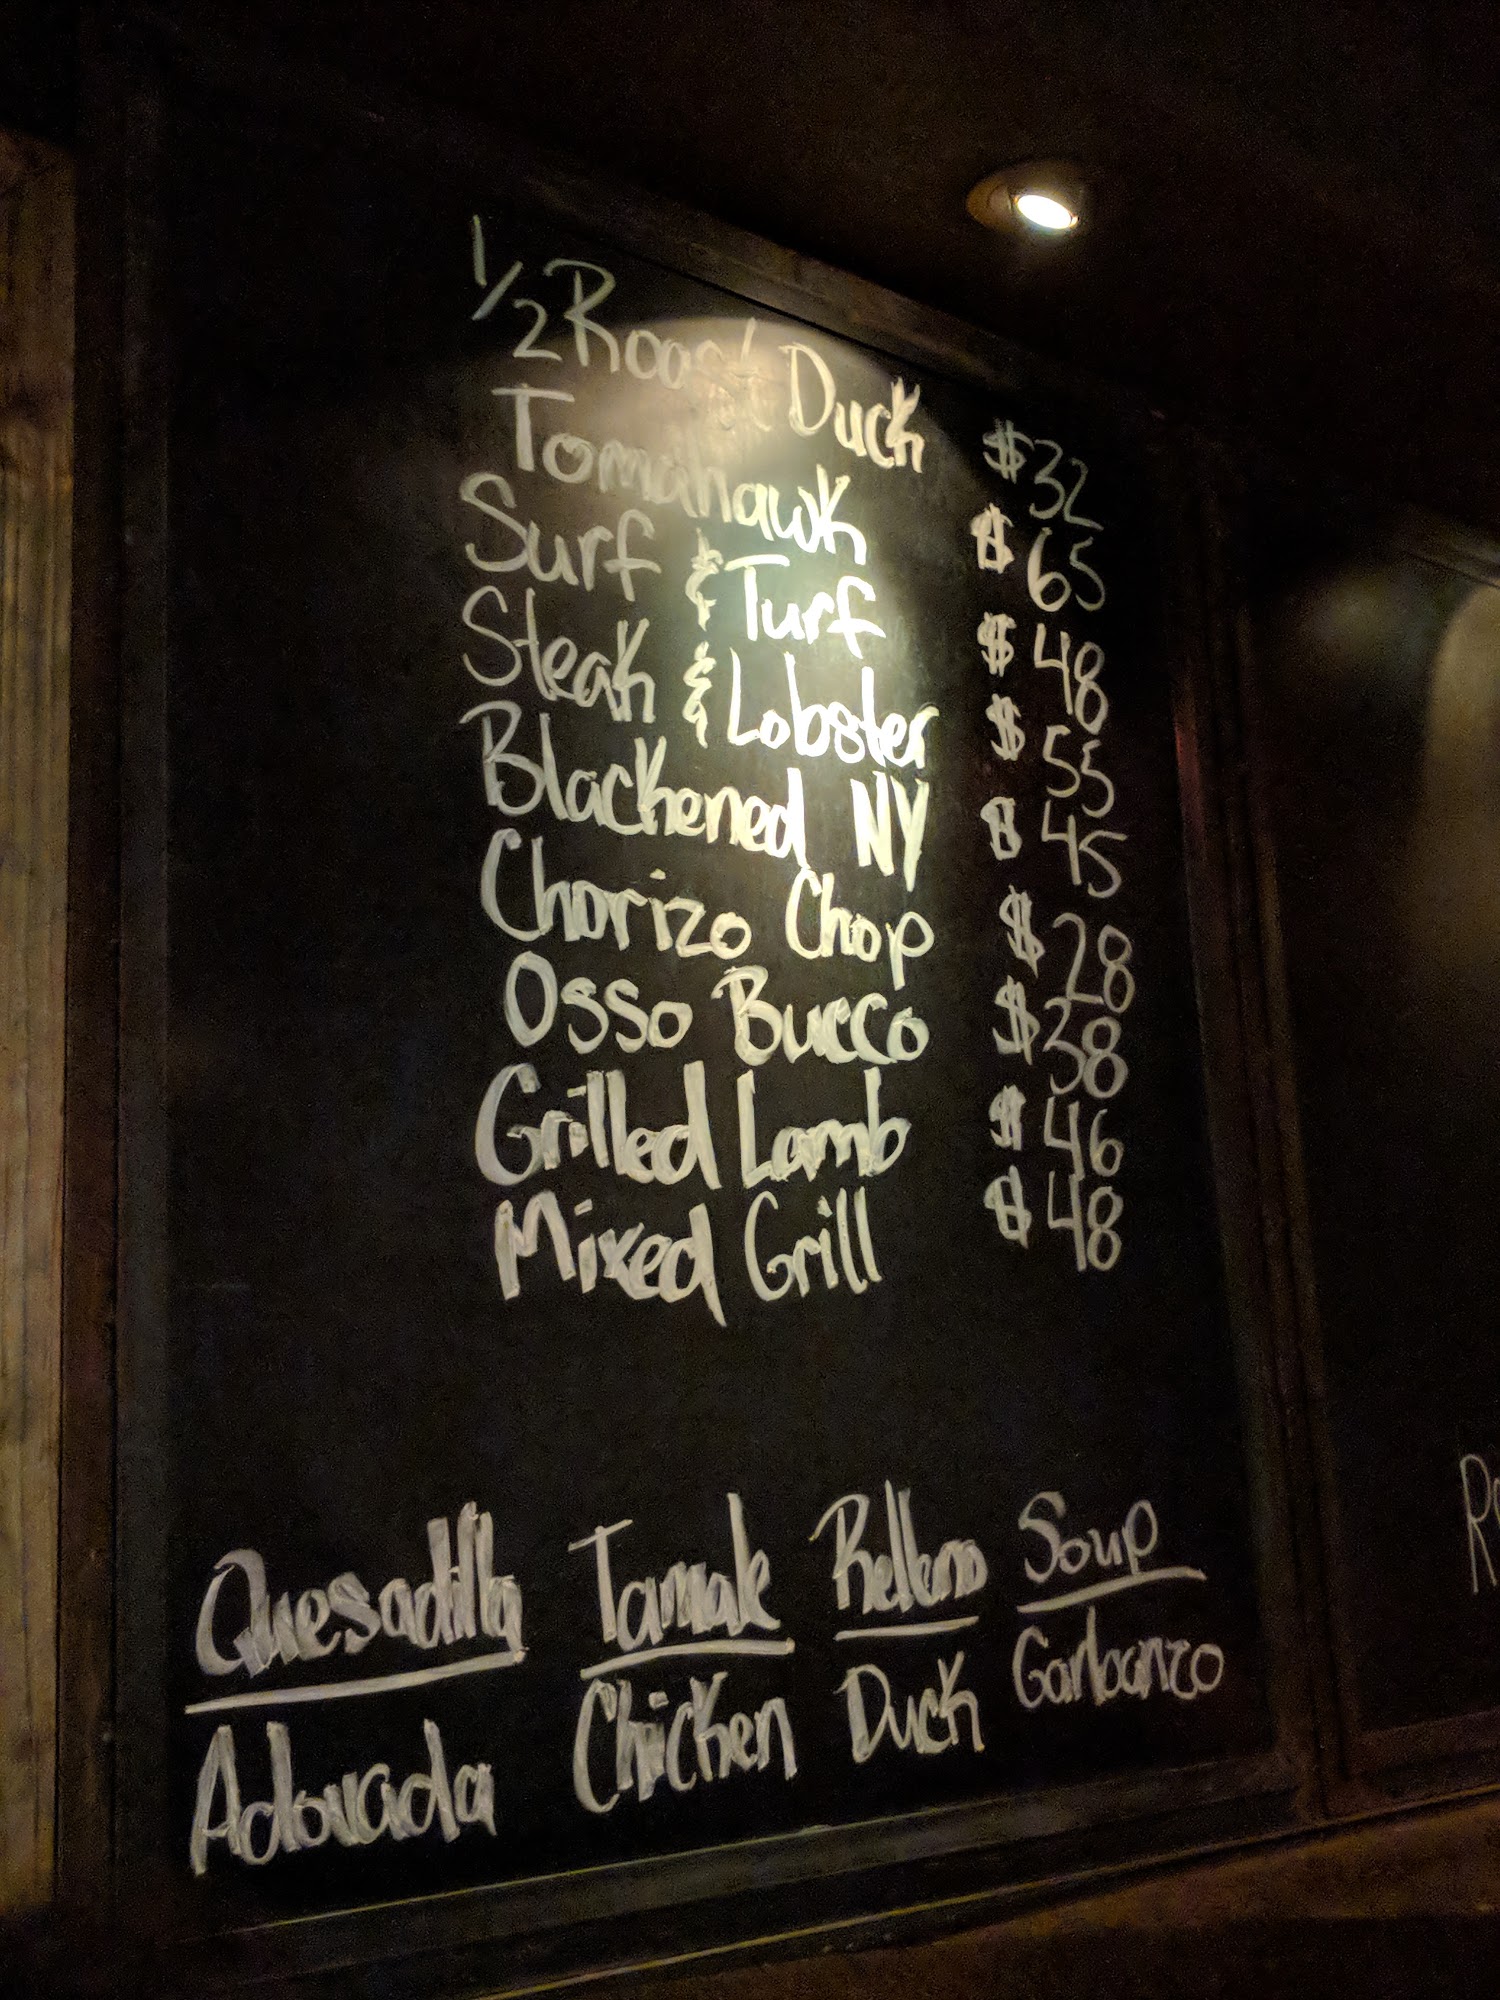 1/2 Roast Duck $32
Tomahawk $65
Surf & Turf $48
Steak & Lobster $55
Blackened NY $45
Chorizo Chop $28
Osso Bucco $38
Grilled Lamb $46
Mixed Grill $48
Quesadilla Tamale Relleno Soup
Adovada Chicken Duck Garbanzo